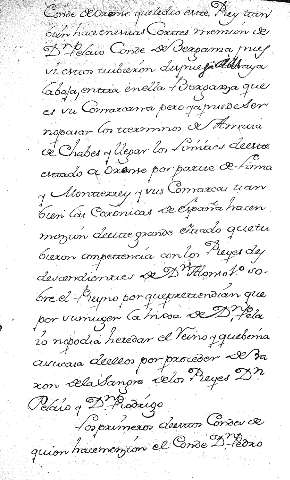 Conde de Oreno que dio este Rey tan
bien hacen sus Cortes mencion de
Dn. Pelaio Conde de Berganza pues
vi estos tubieron despues
la boja entraria en ella y Berganza que
es su Comarcana pero ya puede ser
no pasar los terminos de
de Chabes y llegar los Limites de este
estado a Orense por parte de Limia
y Monterrey y sus Comarcas tan
bien las Coronicas de España hacen
menzion de este grande estado que tu
bieron competencia con los Reyes de
descendientes de Dn. Alonso 1o. so
bre el Reyno porque pretendian que
por su muger la hija de Dn. Pela
io no podia heredar el Reino y que benia
a ellos por proceder de Ba
ron de la Sangre de los Reyes Dn
Pelaio y Dn. Rodrigo
Los primeros de estos Condes de
quien hace menzion el Conde Dn. Pedro